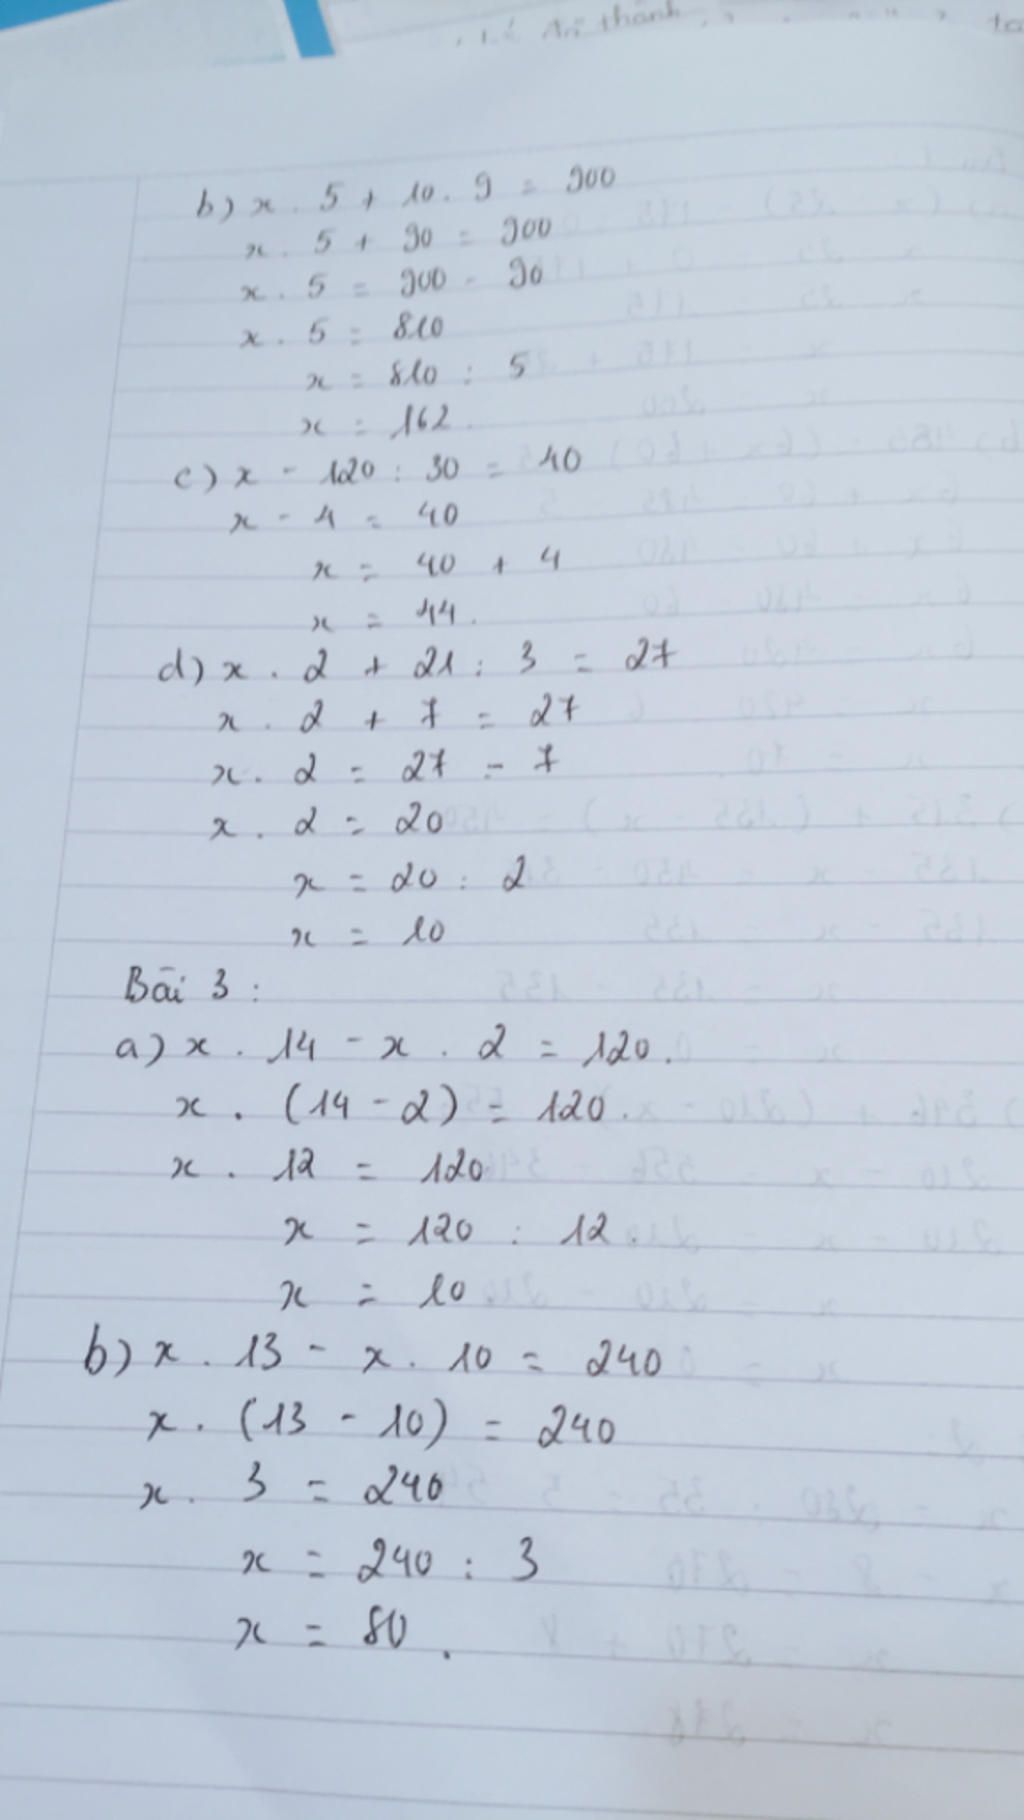 b) x . 5 + 10 . 9 = 900
x . 5 + 90 = 900
x . 5 = 900 - 90
x . 5 = 810
x = 810 : 5
x = 162
c) x - 120 : 30 = 40
x - 4 = 40
x = 40 + 4
x = 44.
d) x . 2 + 21 : 3 = 27
x . 2 + 7 = 27
x . 2 = 27 - 7
x . 2 = 20
x = 20 : 2
x = 10
Bài 3 :
a) x . 14 - x . 2 = 120.
x . (14 - 2) = 120.
x . 12 = 120
x = 120 : 12.
x = 10
b) x . 13 - x . 10 = 240
x . (13 - 10) = 240
x . 3 = 240
x = 240 : 3
x = 80.